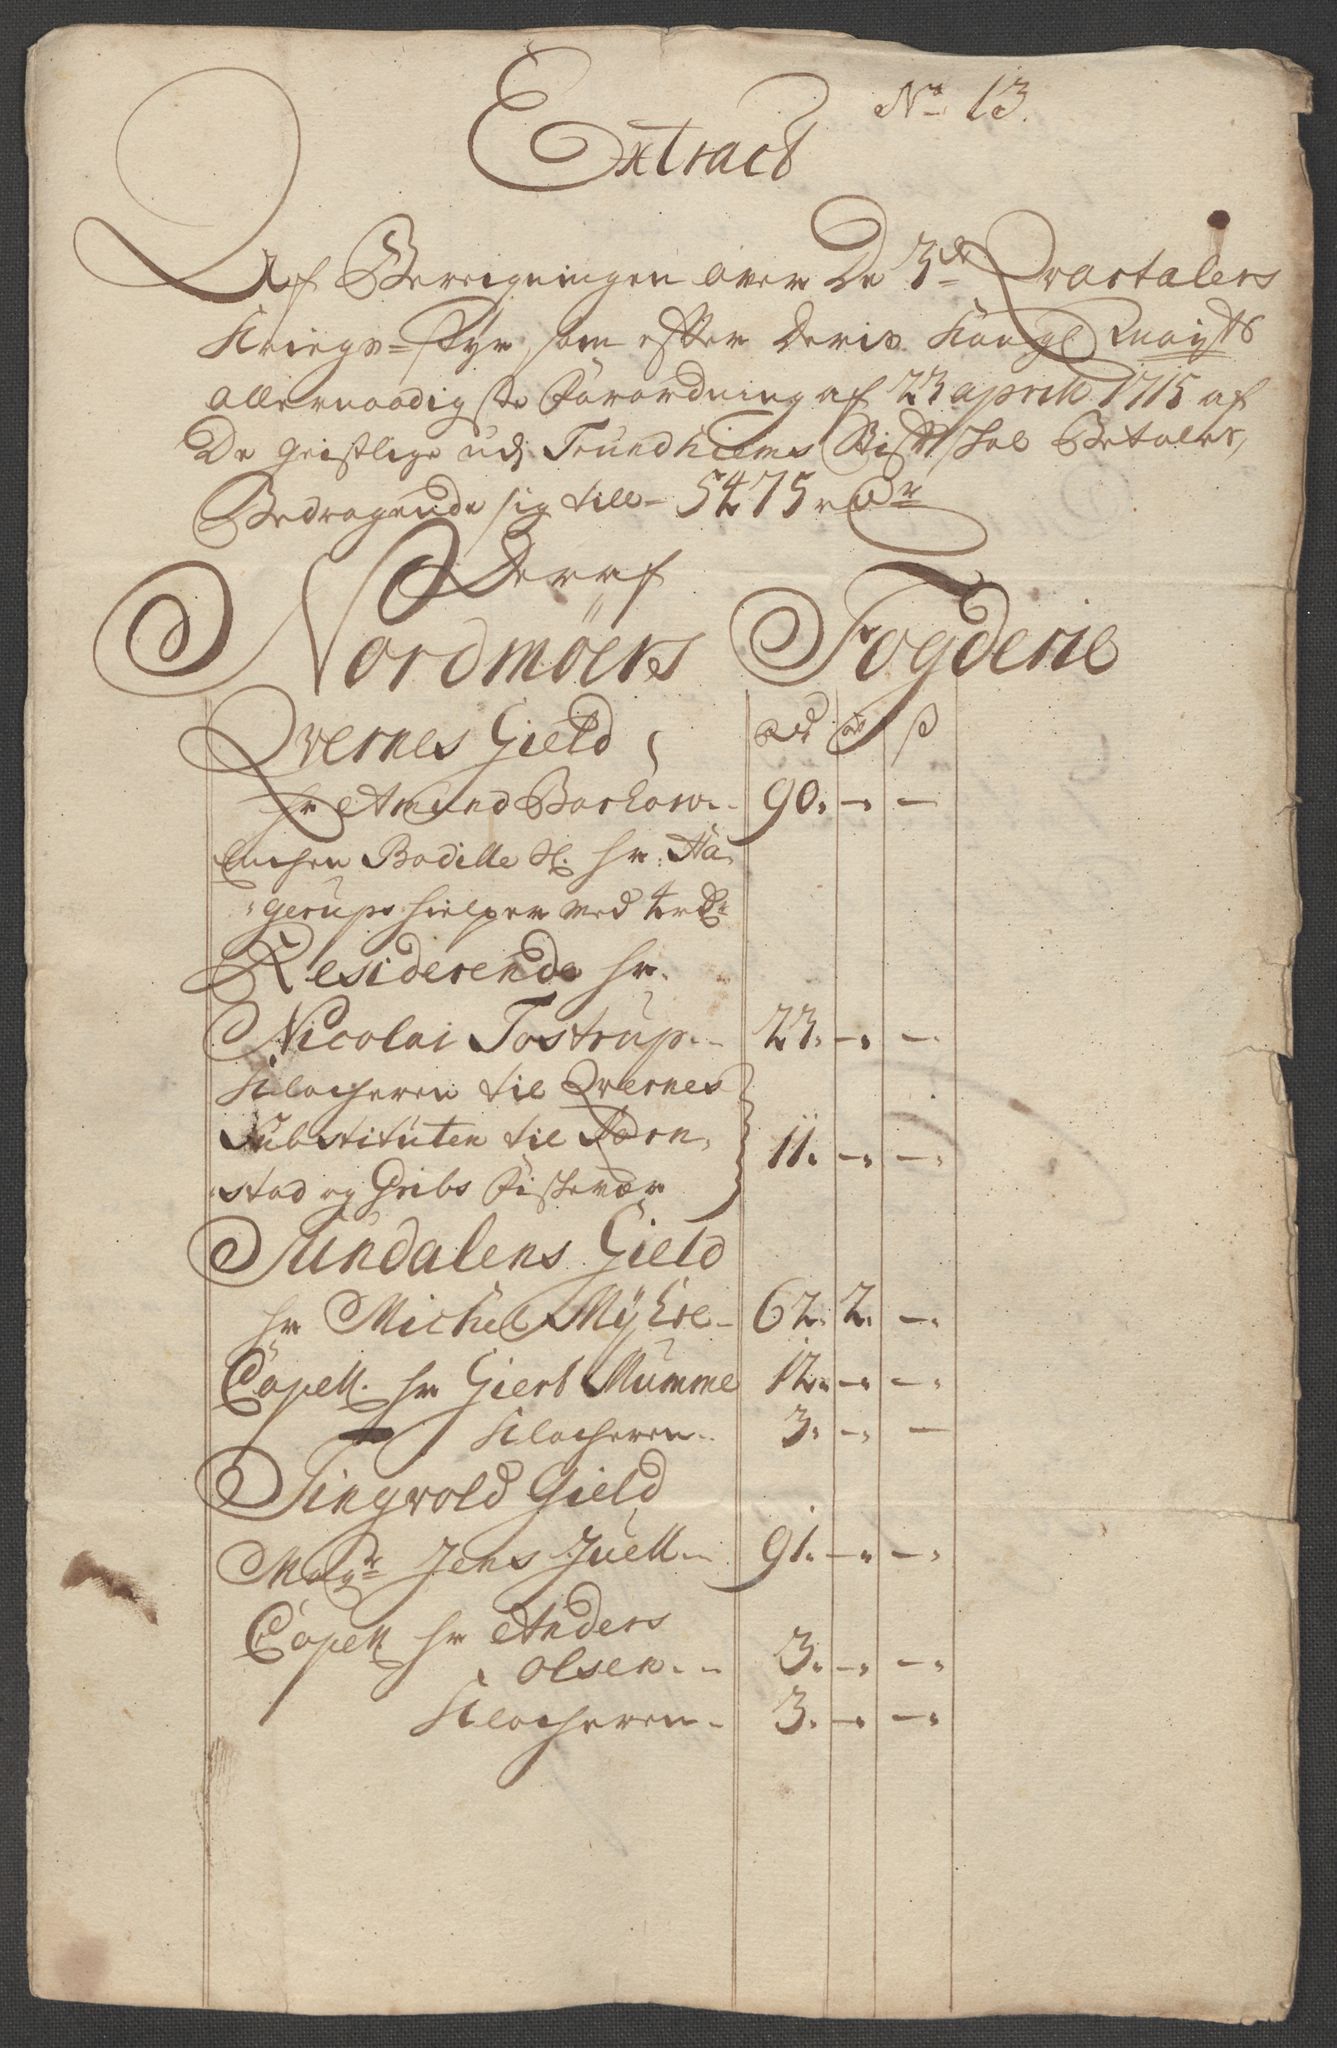 No 13.
Extract
Af Beregningen over De 3de Qvartalers
Kriegs-Styr, som efter Deris Kongl Mayts
allernaadigste Forordning af 23 aprili 1715 af
De Geistlige udj Trundhiems Stift skal Betales,
Bedragende sig till 5475 rdr
Deraf
Nordmöers Fogderie
Qvernes Gield
rd mk ß
hr Amund Barhow 90. - -
Enchen Bodille Sl. hr. Ha-
gerups hielper med 4 rdr
Residerende hr.
Nicolai Tostrup 23. - -
Klocheren til Qvernes
Substituten til Korn-
stad og Gribs Fischevær 11. - -
Sundalens Gield
hr Michel Myhre 62. 2. -
Capell. hr Giert Mumme 12. - -
Klocheren 3. - -
Tingvold Gield
Magr Jens Juell 91. - -
Capell hr Anders
Olsen 3. - -
Klocheren 3. - -